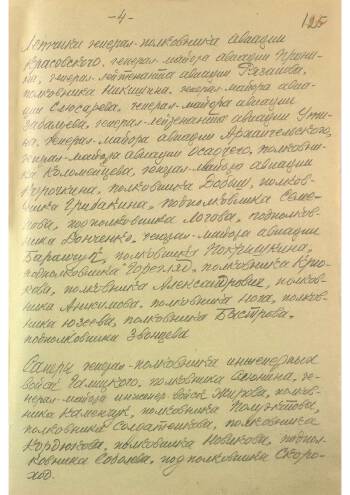 -4-
125
Летчики генерал-полковника авиации
Красовского, генерал-майора авиации Прони-
на, генерал-лейтенанта авиации Рязанова,
полковника Никишина, генерал-майора авиа-
ции Слюсарева, генерал-майора авиации
генерал-лейтенанта авиации Ути-
на, генерал-майора авиации Архангельского,
генерал-майора авиации Осадчего, полковни-
ка Коломейцева, генерал-майора авиации
полковника полков-
ника Грибакина, подполковника Семе-
нова, подполковника Логова, подполков-
ника Донченко, генерал-майора авиации
Баранчук, полковника Покрышкина,
подполковника Горегляд, полковника Крю-
кова, полковника Александрович, полков-
ника полковника полков-
ника полковника Быстрова,
подполковника Звонцева
Саперы генерал-полковника инженерных
войск Галицкого, полковника
нерал-майора инженер. войск полков-
ника Каменчук, полковника Полуэктова,
полковника Солдатенкова, полковника
Кордюкова, полковника Новикова, подпол-
ковника Соболева, подполковника Скоро-
ход.